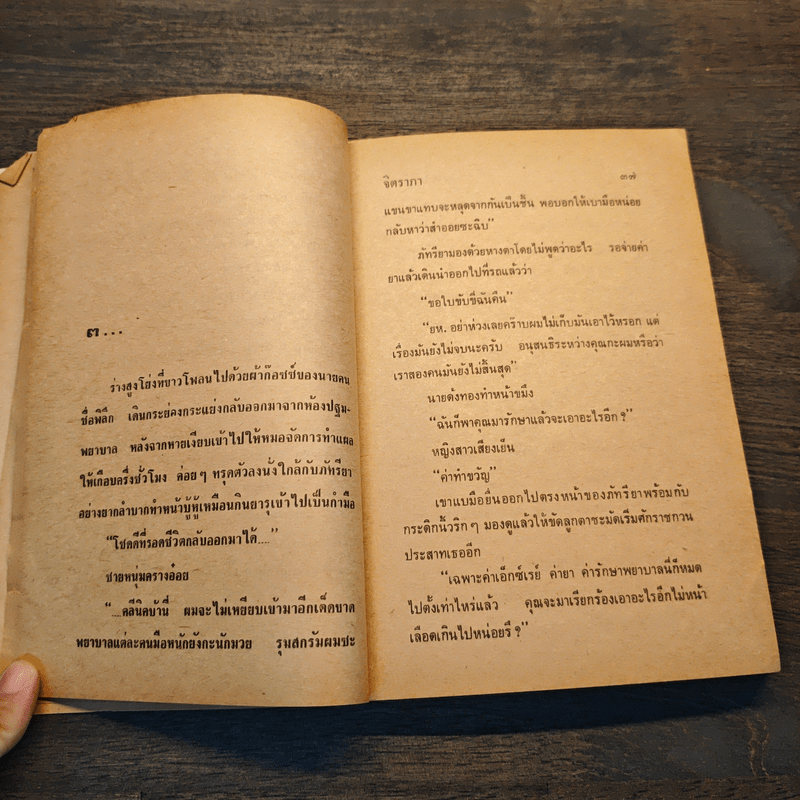 ๓...
ร่างสูงโย่งที่ขาวโพลนไปด้วยผ้าก๊อซซ์ของนายคน
ชื่อพิลึก เดินกระย่องกระแย่งกลับออกมาจากห้องปฐม-
พยาบาล หลังจากหายเงียบเข้าไปให้หมอจัดการทำแผล
ให้เกือบครึ่งชั่วโมง ค่อยๆ ทรุดตัวลงนั่งใกล้กับภัทรียา
อย่างยากลำบากทำหน้าบู้บู้เหมือนกินยารุเข้าไปเป็นกำมือ
“โชคดีที่รอดชีวิตกลับออกมาได้....”
ชายหนุ่มครางอ๋อย
“....คลีนิคบ้านี่ ผมจะไม่เหยียบเข้ามาอีกเด็ดขาด
พยาบาลแต่ละคนมือหนักยังกะนักมวย รุนสกรัมผมซะ
จิตราภา ๓๗
แขนขาแทบจะหลุดจากกันเป็นชิ้น พอบอกให้เบามือหน่อย
กลับหาว่าสำออยซะฉิบ”
ภัทรียามองด้วยหางตาโดยไม่พูดว่าอะไร รอจ่ายค่า
ยาแล้วเดินนำออกไปที่รถแล้วว่า
“ขอใบขับขี่ฉันคืน”
“ยห. อย่าห่วงเลยคร๊าบผมไม่เก็บมันเอาไว้หรอก แต่
เรื่องมันยังไม่จบนะครับ อนุสนธิระหว่างคุณกะผมหรือว่า
เราสองคนมันยังไม่สิ้นสุด”
นายดั้งทองทำหน้าขมึง
“ฉันก็พาคุณมารักษาแล้วจะเอาอะไรอีก ?”
หญิงสาวเสียงเย็น
“ค่าทำขวัญ”
เขาแบมือยื่นออกไปตรงหน้าของภัทรียาพร้อมกับ
กระดิกนิ้วริกๆ มองดูแล้วให้ขัดลูกตาซะมัดเริ่มศักราชกวน
ประสาทเธออีก
“เฉพาะค่าเอ็กซ์เรย์ ค่ายา ค่ารักษาพยาบาลนี่ก็หมด
ไปตั้งเท่าไหร่แล้ว คุณจะมาเรียกร้องเอาอะไรอีกไม่หน้า
เลือดเกินไปหน่อยรึ ?”